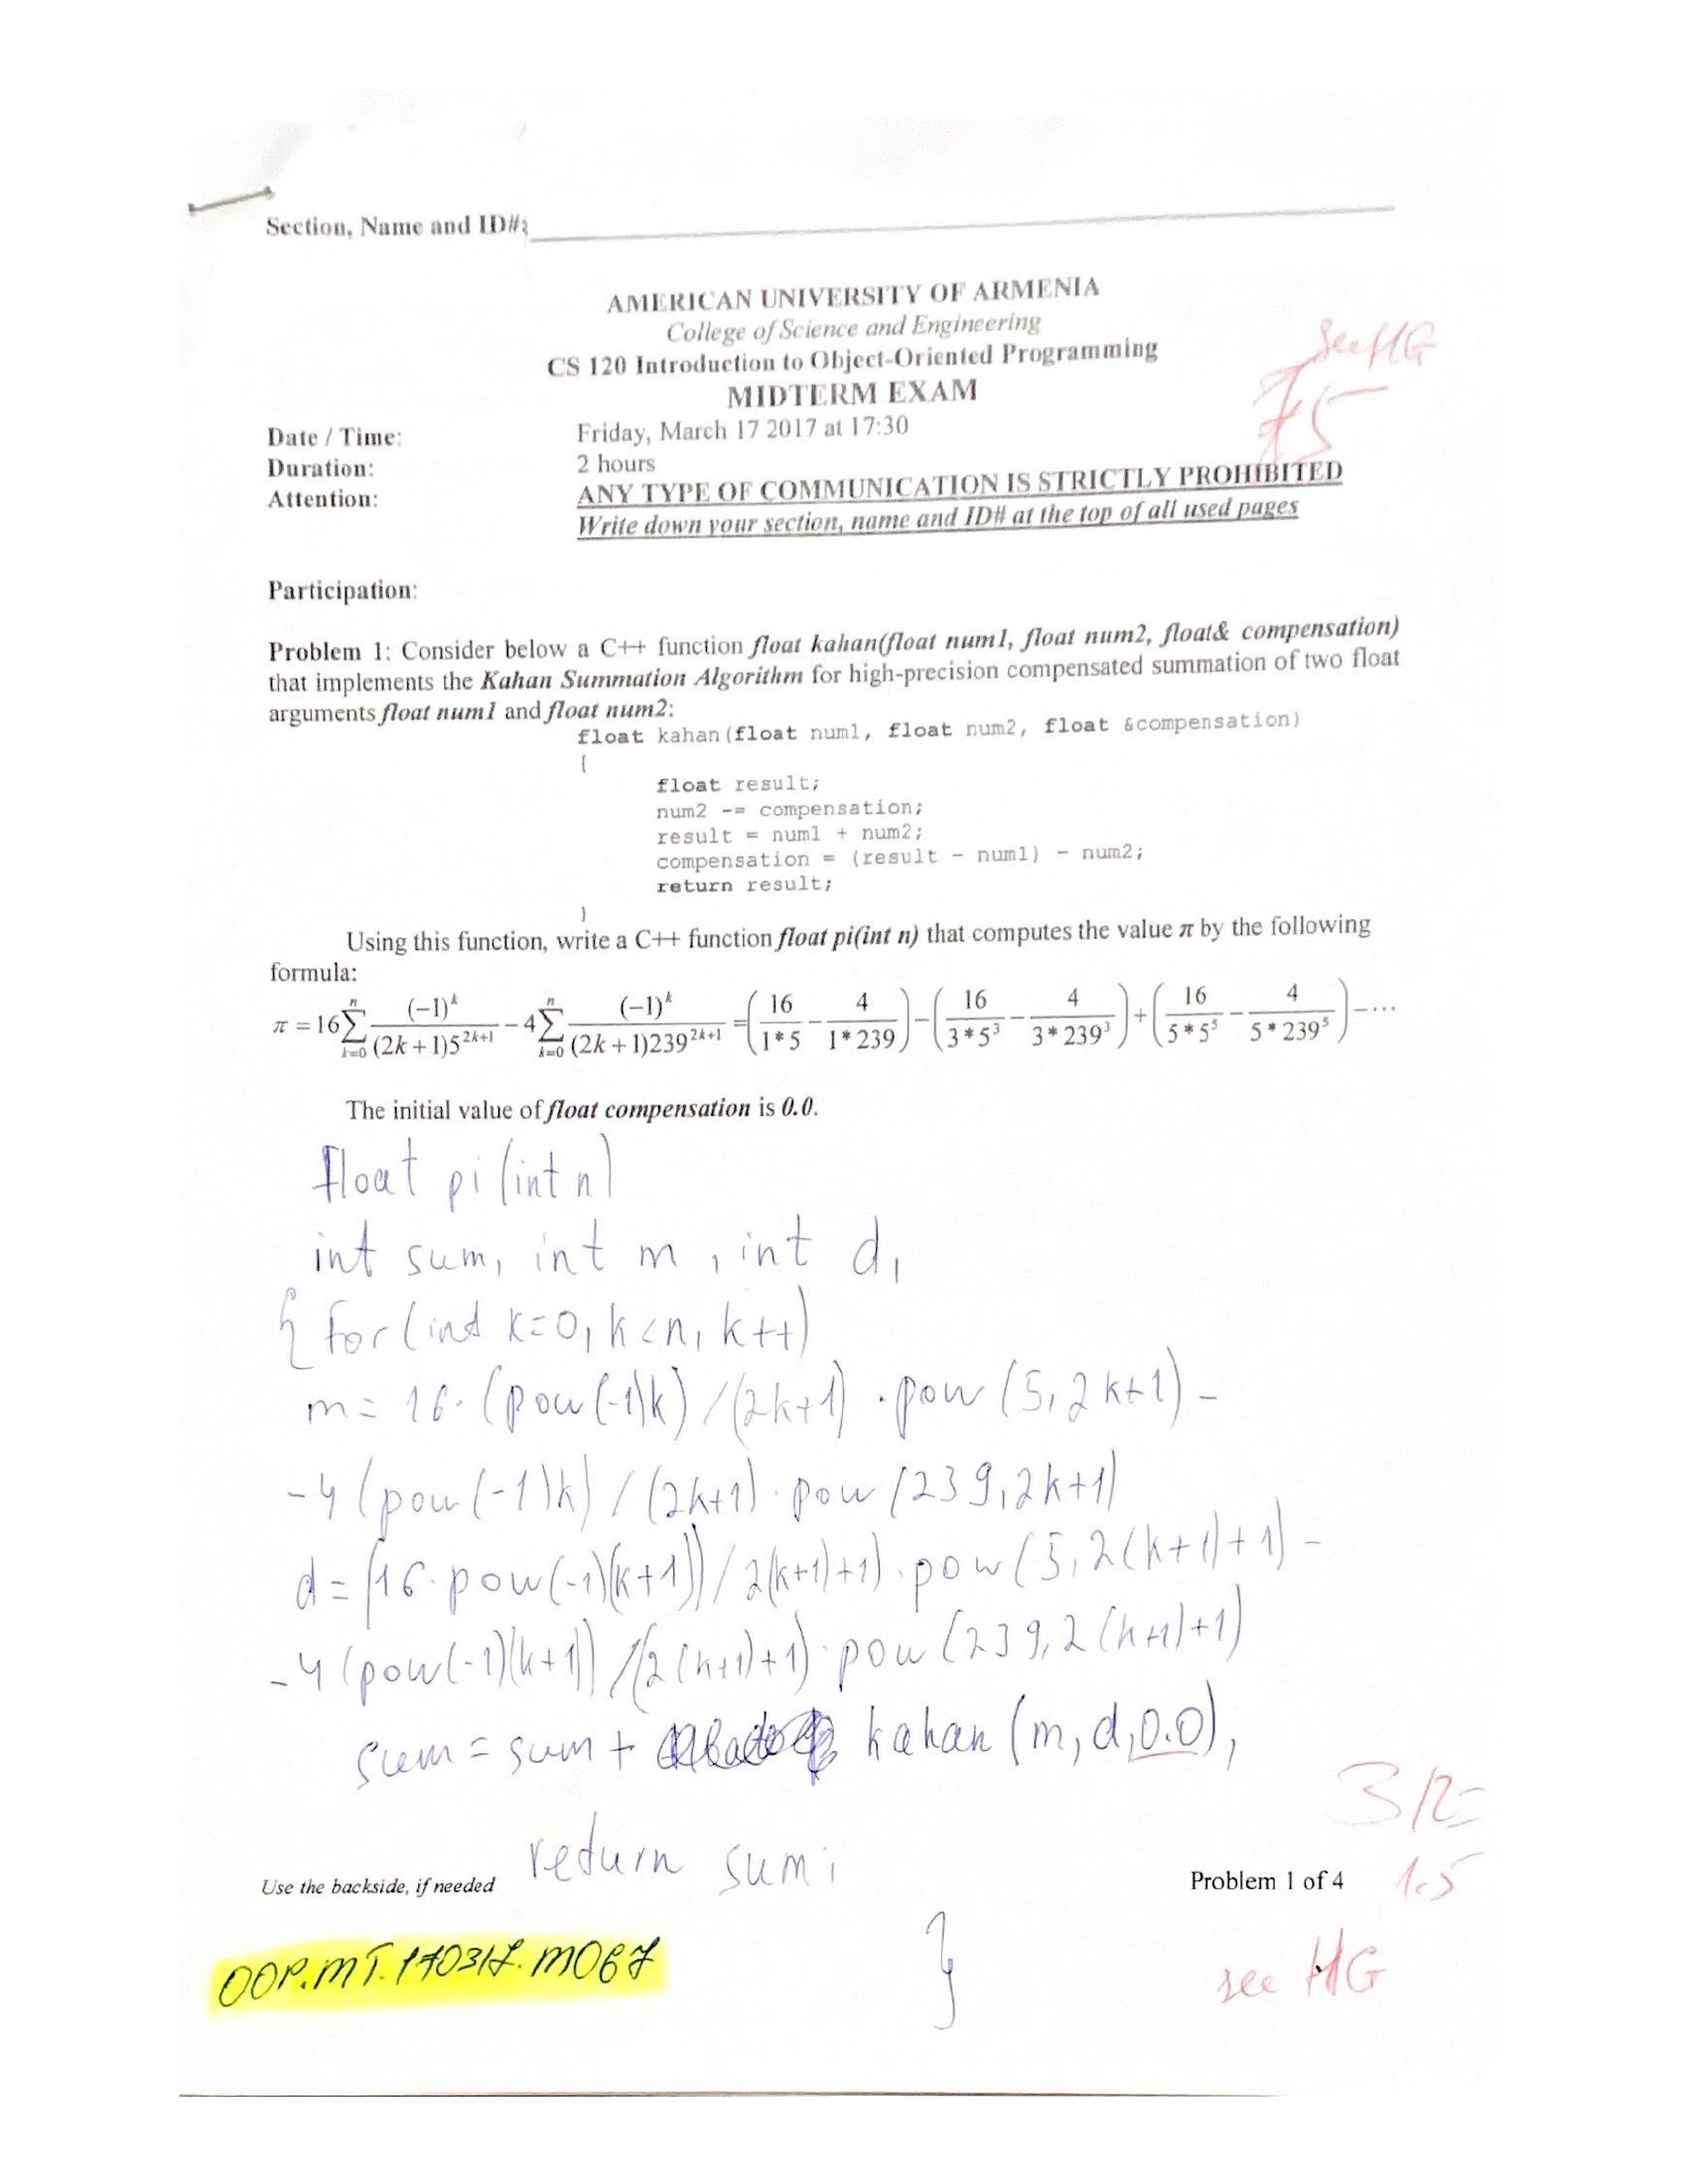 Section, Name and ID#:
AMERICAN UNIVERSITY OF ARMENIA
College of Science and Engineering
see HG
CS 120 Introduction to Object-Oriented Programming
MIDTERM EXAM
75
Date / Time: Friday, March 17 2017 at 17:30
Duration: 2 hours
Attention: ANY TYPE OF COMMUNICATION IS STRICTLY PROHIBITED
Write down your section, name and ID# at the top of all used pages
Participation:
Problem 1: Consider below a C++ function float kahan(float num1, float num2, float& compensation)
that implements the Kahan Summation Algorithm for high-precision compensated summation of two float
arguments float num1 and float num2:
float kahan(float num1, float num2, float &compensation)
{
float result;
num2 -= compensation;
result = num1 + num2;
compensation = (result - num1) - num2;
return result;
}
Using this function, write a C++ function float pi(int n) that computes the value π by the following
formula:
π = 16 ∑_{k=0}^{n} (-1)^k / ((2k+1)5^{2k+1}) - 4 ∑_{k=0}^{n} (-1)^k / ((2k+1)239^{2k+1}) = (16/(1*5) - 4/(1*239)) - (16/(3*5^3) - 4/(3*239^3)) + (16/(5*5^5) - 4/(5*239^5)) - ···
The initial value of float compensation is 0.0.
float pi (int n)
int sum, int m, int d,
{ for (int k=0, k<n, k++)
m = 16·(pow(-1)k)/(2k+1)·pow(5,2k+1)-
-4(pow(-1)k)/(2k+1)·pow(239,2k+1)
d=(16·pow(-1)(k+1))/2(k+1)+1)·pow(5,2(k+1)+1)-
-4(pow(-1)(k+1))/(2(k+1)+1)·pow(239,2(k+1)+1)
sum = sum + kahan (m, d, 0.0),
3/2=
return sum;
Use the backside, if needed
Problem 1 of 4
1.5
}
OOP.MT.170317.M067
see HG